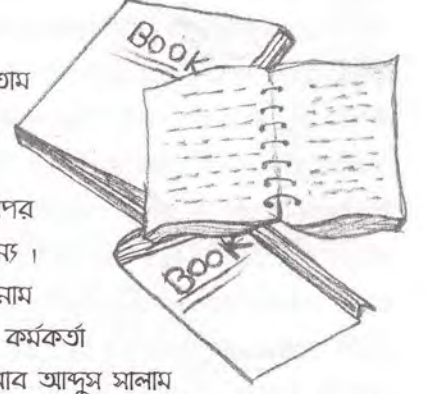 BOOK
তাম
পের
ন্য ।
নাম
কর্মকর্তা
াব আব্দুস সালাম
BOOK